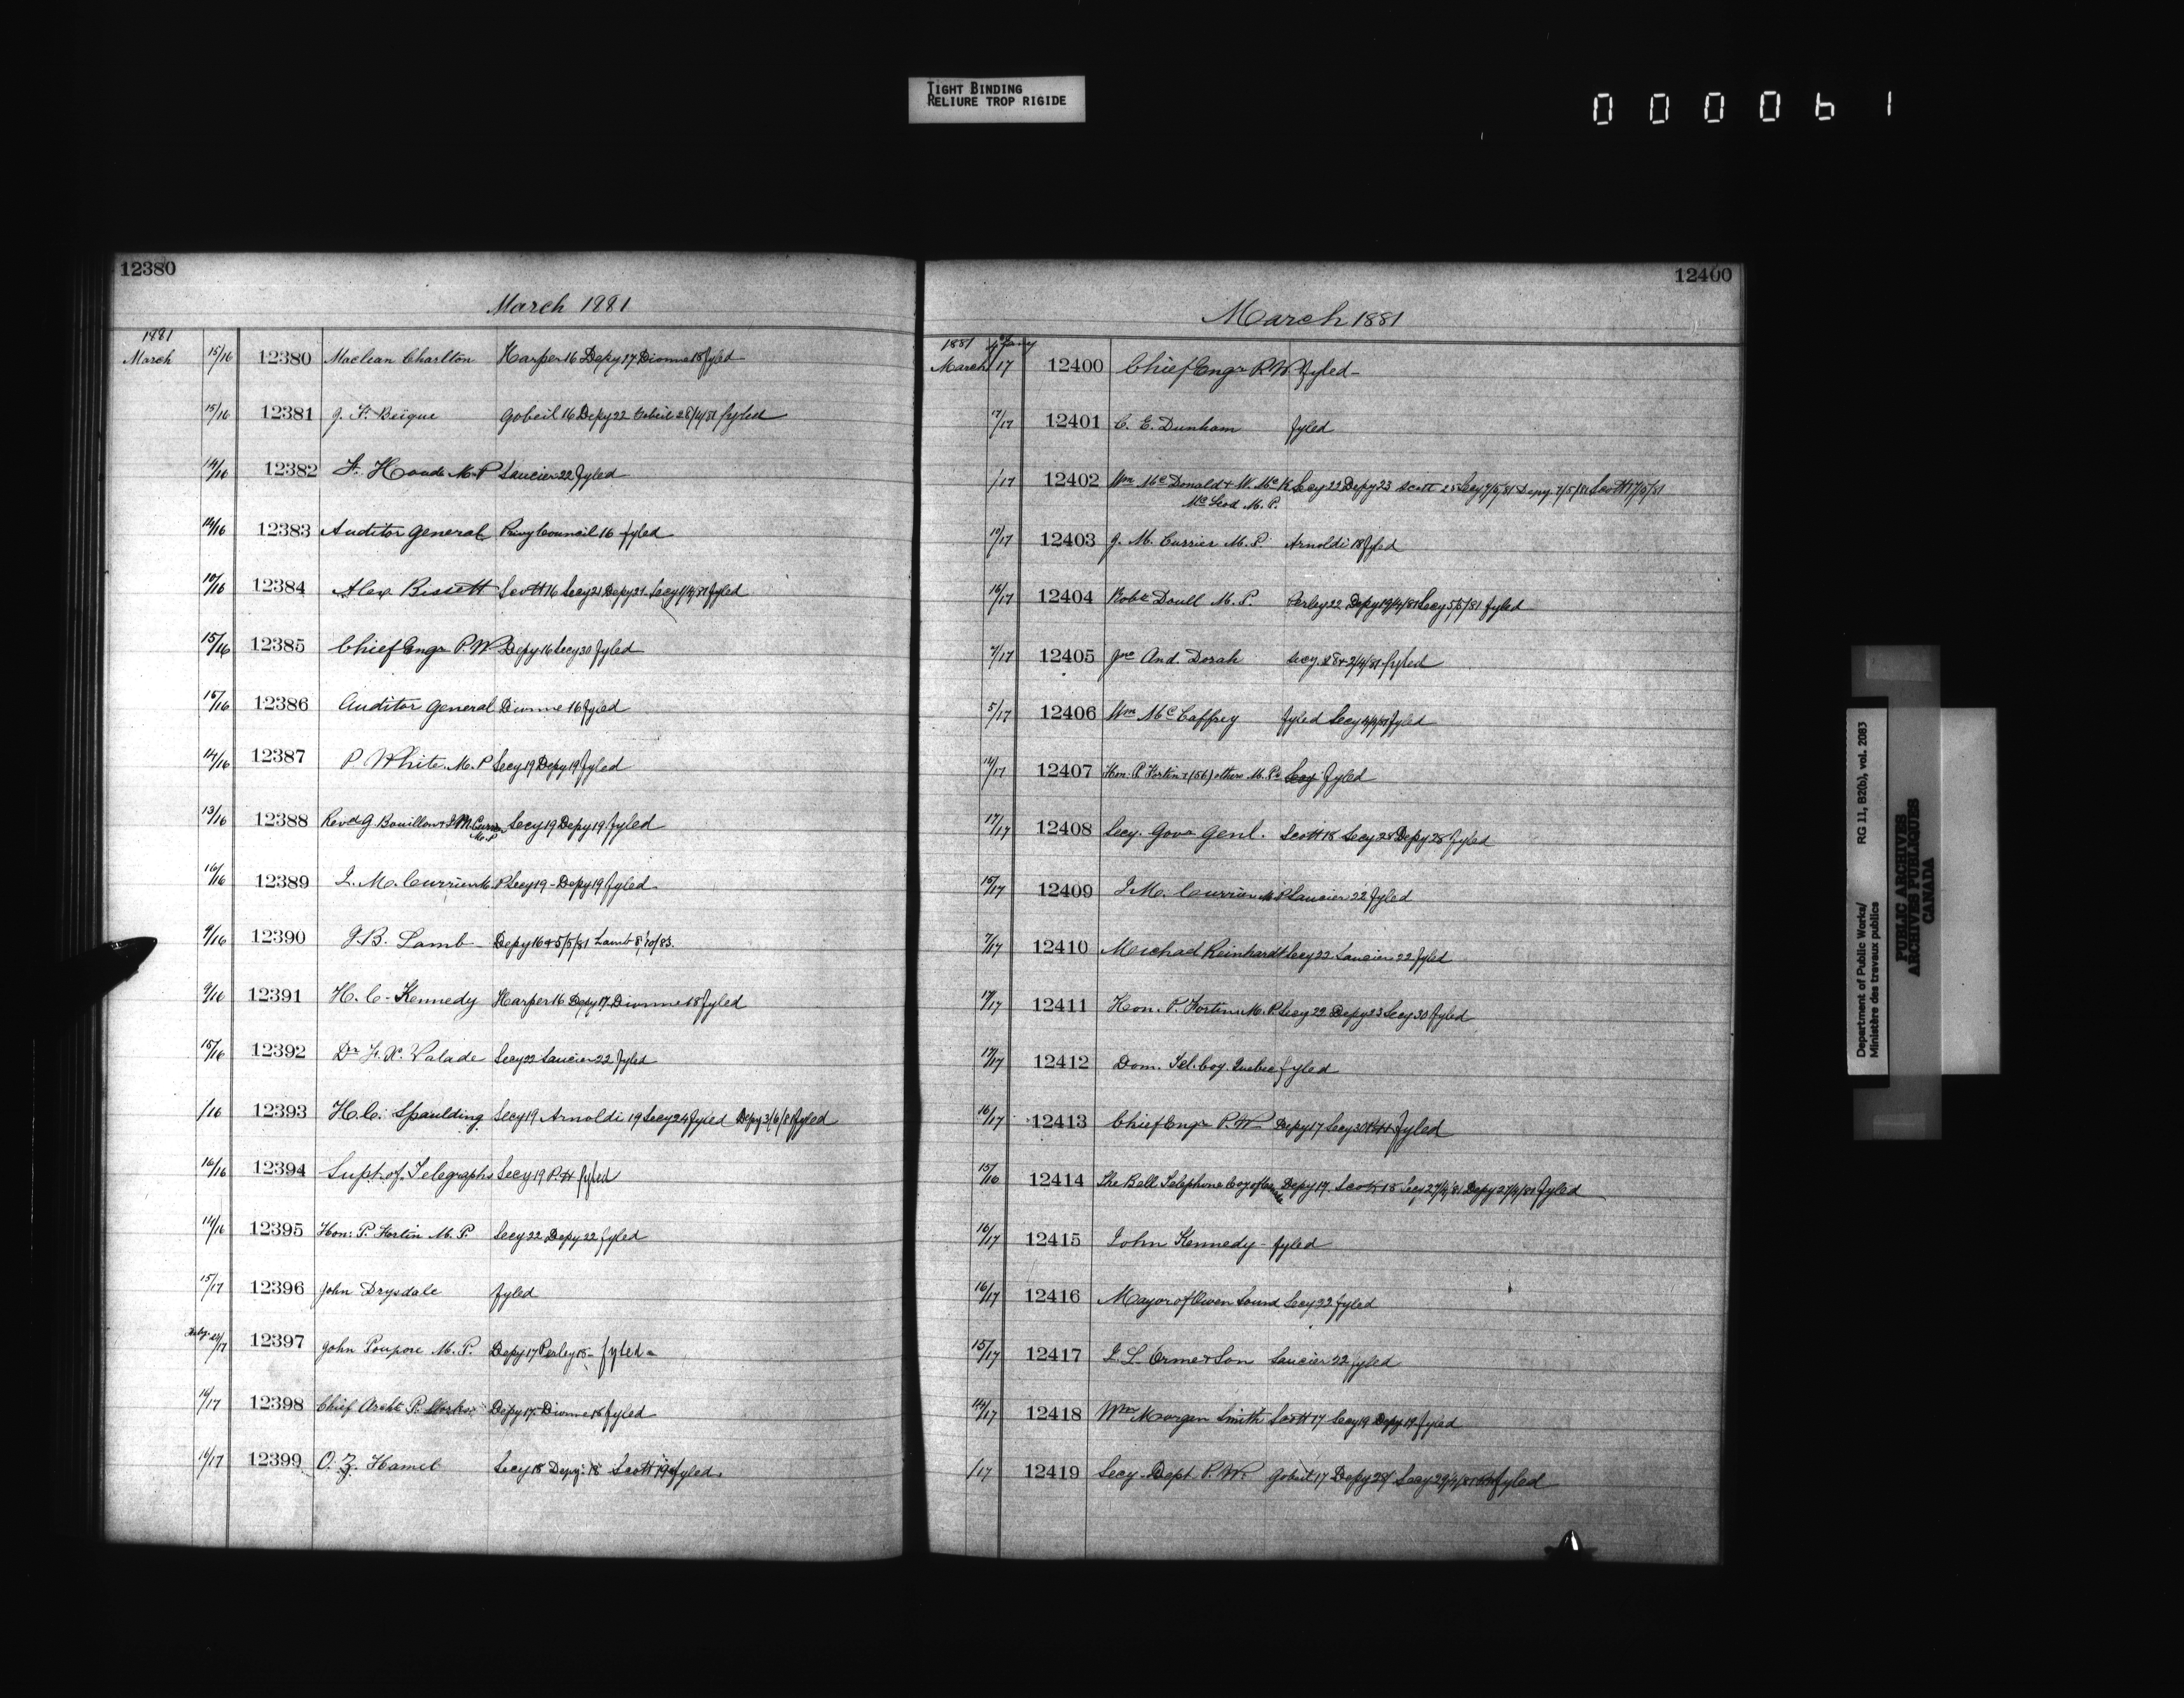 TIGHT BINDING
RELIURE TROP RIGIDE
000061
12380
March 1881
1881
March 15/16 12380 Maclean Charlton Harper 16 Depy 17 Dionne 18 fyled
15/16 12381 J. F. Beique Gobeil 16 Depy 22 Gobeil 28/4/81 fyled
14/16 12382 F. Houde M.P Saucier 22 fyled
14/16 12383 Auditor General Privy Council 16 fyled
12384 Alex Bissett Scott 16 Secy 21 Depy 21 Secy 1/4/81 fyled
15/16 12385 Chief Engr P.W Depy 16 Secy 30 fyled
15/16 12386 Auditor General Dionne 16 fyled
14/16 12387 P. White M.P Secy 19 Depy 19 fyled
13/16 12388 Revd G Bouillon & J M Currier Secy 19 Depy 19 fyled
M.P
16/16 12389 J. M. Currier M.P Secy 19 - Depy 19 fyled
9/16 12390 J.B. Lamb Depy 16 & 5/5/81 Lamb 8/10/83.
9/16 12391 H. C. Kennedy Harper 16 Depy 17 Dionne 18 fyled
15/16 12392 Dr F. X. Valade Secy 22 Saucier 22 fyled
/16 12393 H. C. Spaulding Secy 19 Arnoldi 19 Secy 24 fyled Depy 3/6/81 fyled
16/16 12394 Supt. of Telegraphs Secy 19 fyled
14/16 12395 Hon: P. Fortin M.P. Secy 22 Depy 22 fyled
15/17 12396 John Drysdale fyled
12397 John Poupore M.P. Depy 17 Perley 18 - fyled -
16/17 12398 Chief Archt P. Works Depy 17 Dionne 18 fyled
16/17 12399 O. Z. Hamel Secy 18 Depy: 18 Scott 19 fyled.
12400
March 1881
1881
March /17 12400 Chief Engr P.W fyled -
17/17 12401 C. E. Dunham fyled
/17 12402 Wm McDonald & W. McK Secy 22 Depy 23 Scott 25 Secy 7/5/81 Depy 7/5/81 Scott 17/5/81
McLeod M.P.
12403 J. M. Currier M.P. Arnoldi 18 fyled
16/17 12404 Robt Doull M.P. Perley 22 Depy 19/4/81 Secy 5/5/81 fyled
7/17 12405 Jno And. Dorah Secy. 28 & 2/4/81 fyled
5/17 12406 Wm McCaffrey fyled Secy 4/4/81 fyled
14/17 12407 Hon. P. Fortin & (56) others M.Ps Secy fyled
17/17 12408 Secy. Govr Genl. Scott 18 Secy 28 Depy 28 fyled
15/17 12409 J. M. Currier M.P Saucier 22 fyled
7/17 12410 Michael Reinhardt Secy 22 Saucier 22 fyled
17/17 12411 Hon. P. Fortin M.P. Secy 22 Depy 23 Secy 30 fyled
17/17 12412 Dom. Tel. Coy. Quebec fyled
16/17 12413 Chief Engr P.W. Depy 17 Secy 30 fyled
15/16 12414 The Bell Telephone Coy of Canada Depy 17. Scott 18 Secy 27/4/81 Depy 27/4/81 fyled
16/17 12415 John Kennedy - fyled
16/17 12416 Mayor of Owen Sound Secy 22 fyled
15/17 12417 J. L. Orme & Son Saucier 22 fyled
14/17 12418 Wm Morgan Smith Scott 17 Secy 19 Depy 19 fyled
/17 12419 Secy. Dept. P.W. Gobeil 17 Depy 28/ Secy 29/4/81 fyled
Department of Public Works/ RG 11, B2(b), vol. 2083
Ministère des travaux publics
PUBLIC ARCHIVES
ARCHIVES PUBLIQUES
CANADA